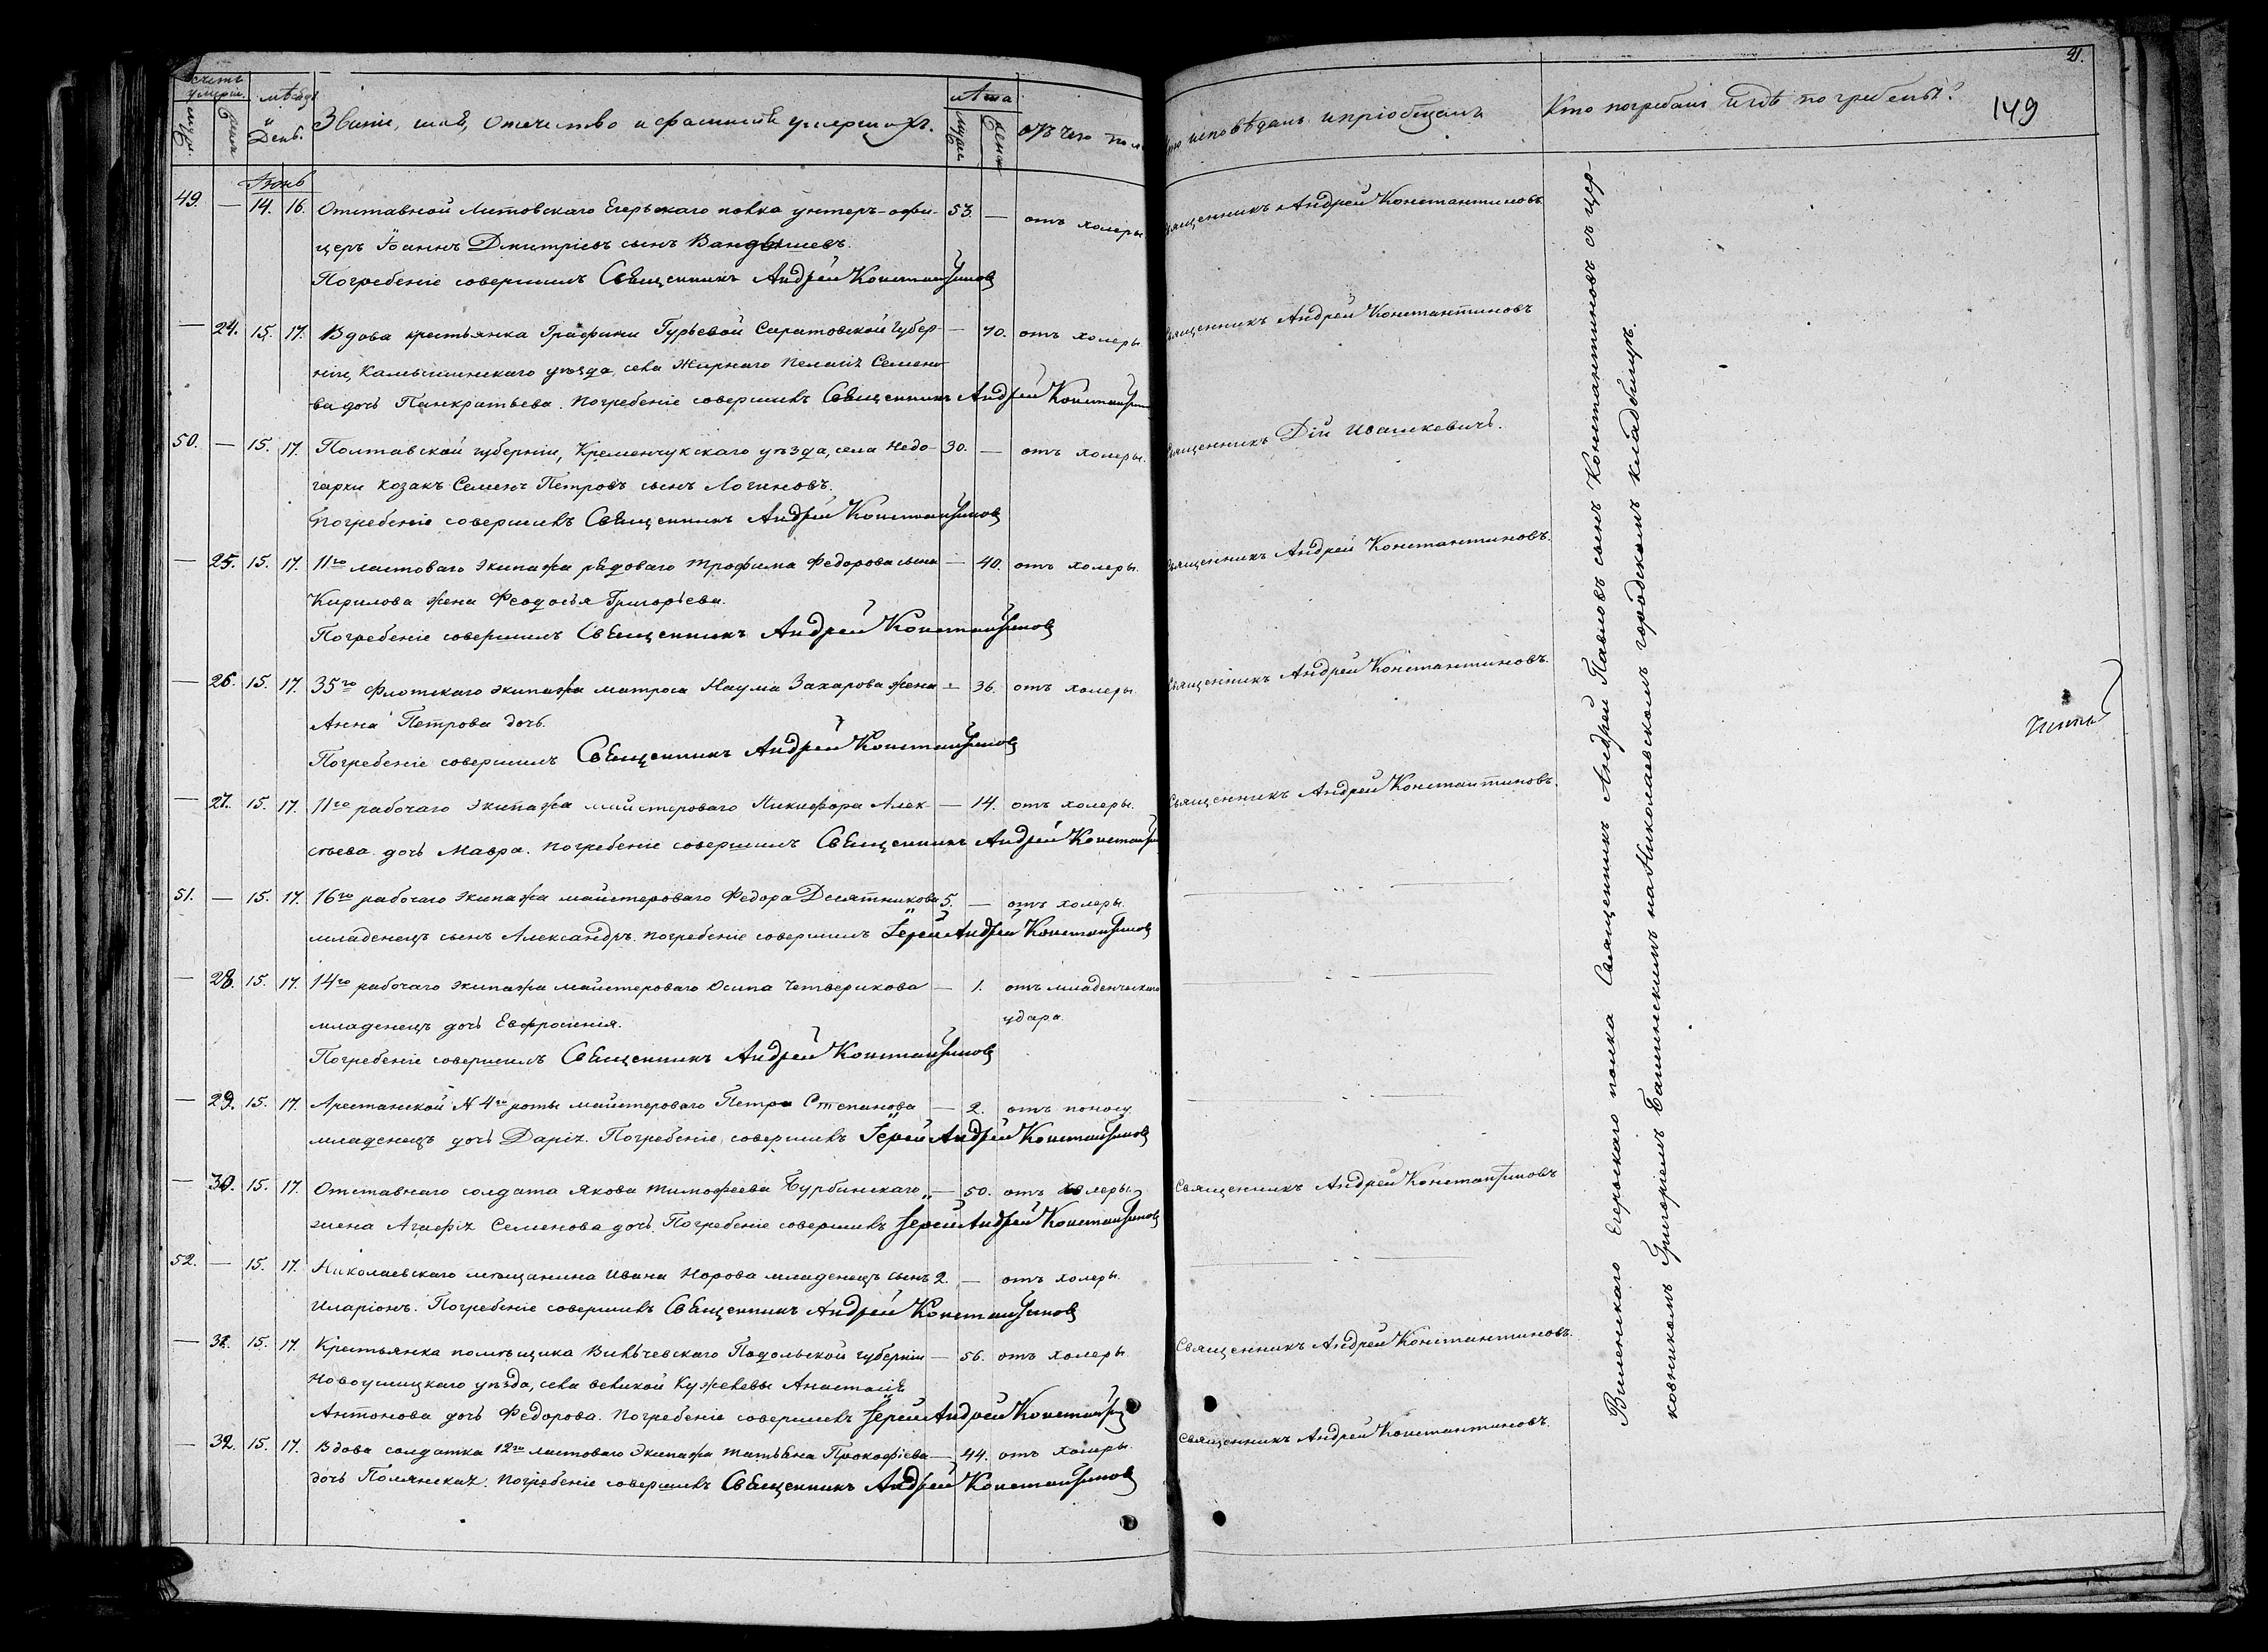 счетъ умерш.
муж. жен.
мѣсяцъ и День.
Званіе, имя, Отчество и фамилія умершихъ.
лѣта
муж. жен.
отъ чего пом
Іюнь
49. — 14. 16. Отставной Литовскаго Егерьскаго полка унтеръ-офи- 53. — отъ холеры
церъ Іоаннъ Дмитріевъ сынъ Вандышевъ.
Погребеніе совершилъ Священникъ Андрей Константиновъ
— 24. 15. 17. Вдова крестьянка Графини Гурьевой Саратовской Губер- — 70. отъ холеры
ніи, Камышинскаго уѣзда, села Жирнаго Пелагія Семено-
ва дочь Панкратьева. Погребеніе совершилъ Священникъ Андрей Константин
50. — 15. 17. Полтавской губерніи, Кременчукскаго уѣзда, села Недо- 30. — отъ холеры.
гарки козакъ Семенъ Петровъ сынъ Логиновъ.
Погребеніе совершилъ Священникъ Андрей Константиновъ
— 25. 15. 17. 11го ластоваго экипажа рядоваго Трофима Федорова сына — 40. отъ холеры.
Кирилова жена Феодосья Григорьева.
Погребеніе совершилъ Священникъ Андрей Константиновъ
— 26. 15. 17. 35го флотскаго экипажа матроса Наума Захарова жена — 36. отъ холеры
Анна Петрова дочь.
Погребеніе совершилъ Священникъ Андрей Константиновъ
— 27. 15. 17. 11го рабочаго экипажа майстероваго Никифора Алек- — 14. отъ холеры.
сѣева дочь Мавра. Погребеніе совершилъ Священникъ Андрей Константи
51. — 15. 17. 16го рабочаго экипажа майстероваго Федора Десятникова 5. — отъ холеры.
младенецъ сынъ Александръ. Погребеніе совершилъ Іерей Андрей Константиновъ
— 28. 15. 17. 14го рабочаго экипажа майстероваго Осипа Четверикова — 1. отъ младенческаго
младенецъ дочь Евфросинія. удара.
Погребеніе совершилъ Священникъ Андрей Константиновъ
— 29. 15. 17. Арестанской № 4й роты майстероваго Петра Степанова — 2. отъ поносу
младенецъ дочь Дарія. Погребеніе совершилъ Іерей Андрей Константиновъ
— 30. 15. 17. Отставнаго солдата Якова Тимофеева Бурбинскаго — 50. отъ холеры
жена Агафія Семенова дочь. Погребеніе совершилъ Іерей Андрей Константиновъ
52. — 15. 17. Николаевскаго мѣщанина Ивана Норова младенецъ сынъ 2. — отъ холеры.
Иларіонъ. Погребеніе совершилъ Священникъ Андрей Константиновъ
— 31. 15. 17. Крестьянка помѣщика Вилѣчевскаго Подольской губерніи — 56. отъ холеры
Новоушицкаго уѣзда, села великой Кужелевы Анастасія
Антонова дочь Федорова. Погребеніе совершилъ Іерей Андрей Константи
— 32. 15. 17. Вдова солдатка 12го ластоваго экипажа Татьяна Прокофіева — 44. отъ холеры
дочь Полянская. Погребеніе совершилъ Священникъ Андрей Константиновъ
исповѣдалъ и пріобщалъ
Кто погребалъ и гдѣ погребены?
21.
149
Священникъ Андрей Константиновъ
Священникъ Андрей Константиновъ
Священникъ Дій Ивашкевичъ.
Священникъ Андрей Константиновъ.
Священникъ Андрей Константиновъ.
Священникъ Андрей Константиновъ.
Священникъ Андрей Константиновъ
Священникъ Андрей Константиновъ.
Священникъ Андрей Константиновъ.
Виленскаго Егерскаго полка Священникъ Андрей Павловъ сынъ Константиновъ съ цер-
ковникомъ Григоріемъ Башинскимъ на Николаевскомъ городскомъ кладбищѣ.